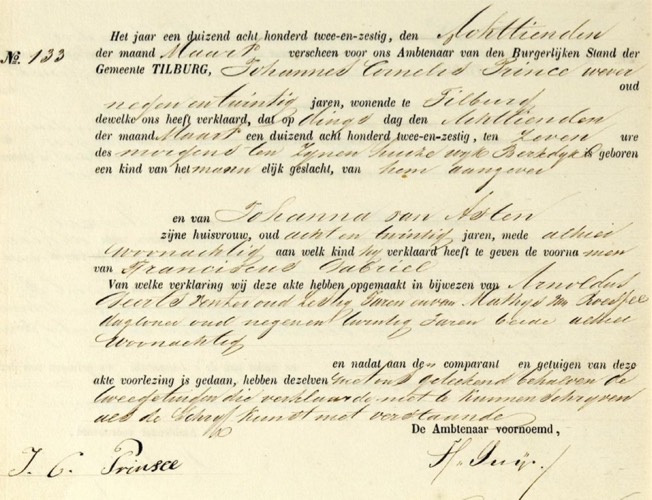 Het jaar een duizend acht honderd twee-en-zestig, den Achttienden
No. 133
der maand Maart verscheen voor ons Ambtenaar van den Burgerlijken Stand der
Gemeente TILBURG, Johannes Cornelis Prince wever
oud
negen en twintig jaren, wonende te Tilburg
dewelke ons heeft verklaard, dat op dings dag den Achttienden
der maand Maart een duizend acht honderd twee-en-zestig, ten Zeven ure
des morgens ten Zynen huize wyk Berkdyk is geboren
een kind van het mann elijk geslacht, van hem aangever
en van Johanna van Asten
zijne huisvrouw, oud acht en twintig jaren, mede alhier
woonachtig aan welk kind hy verklaard heeft te geven de voorna men
van Franciscus Gabriel
Van welke verklaring wij deze akte hebben opgemaakt in bijwezen van Arnoldus
oud Zestig Jaren en van Mathys van
daglooner oud negen en twintig Jaren beide alhier
woonachtig
en nadat aan den comparant en getuigen van deze
akte voorlezing is gedaan, hebben dezelven met ons geteekend behalven de
twee getuigen die verklaarde niet te kunnen schryven
als de Schryf kunst niet verstaande
De Ambtenaar voornoemd,
J. C. Prinsee